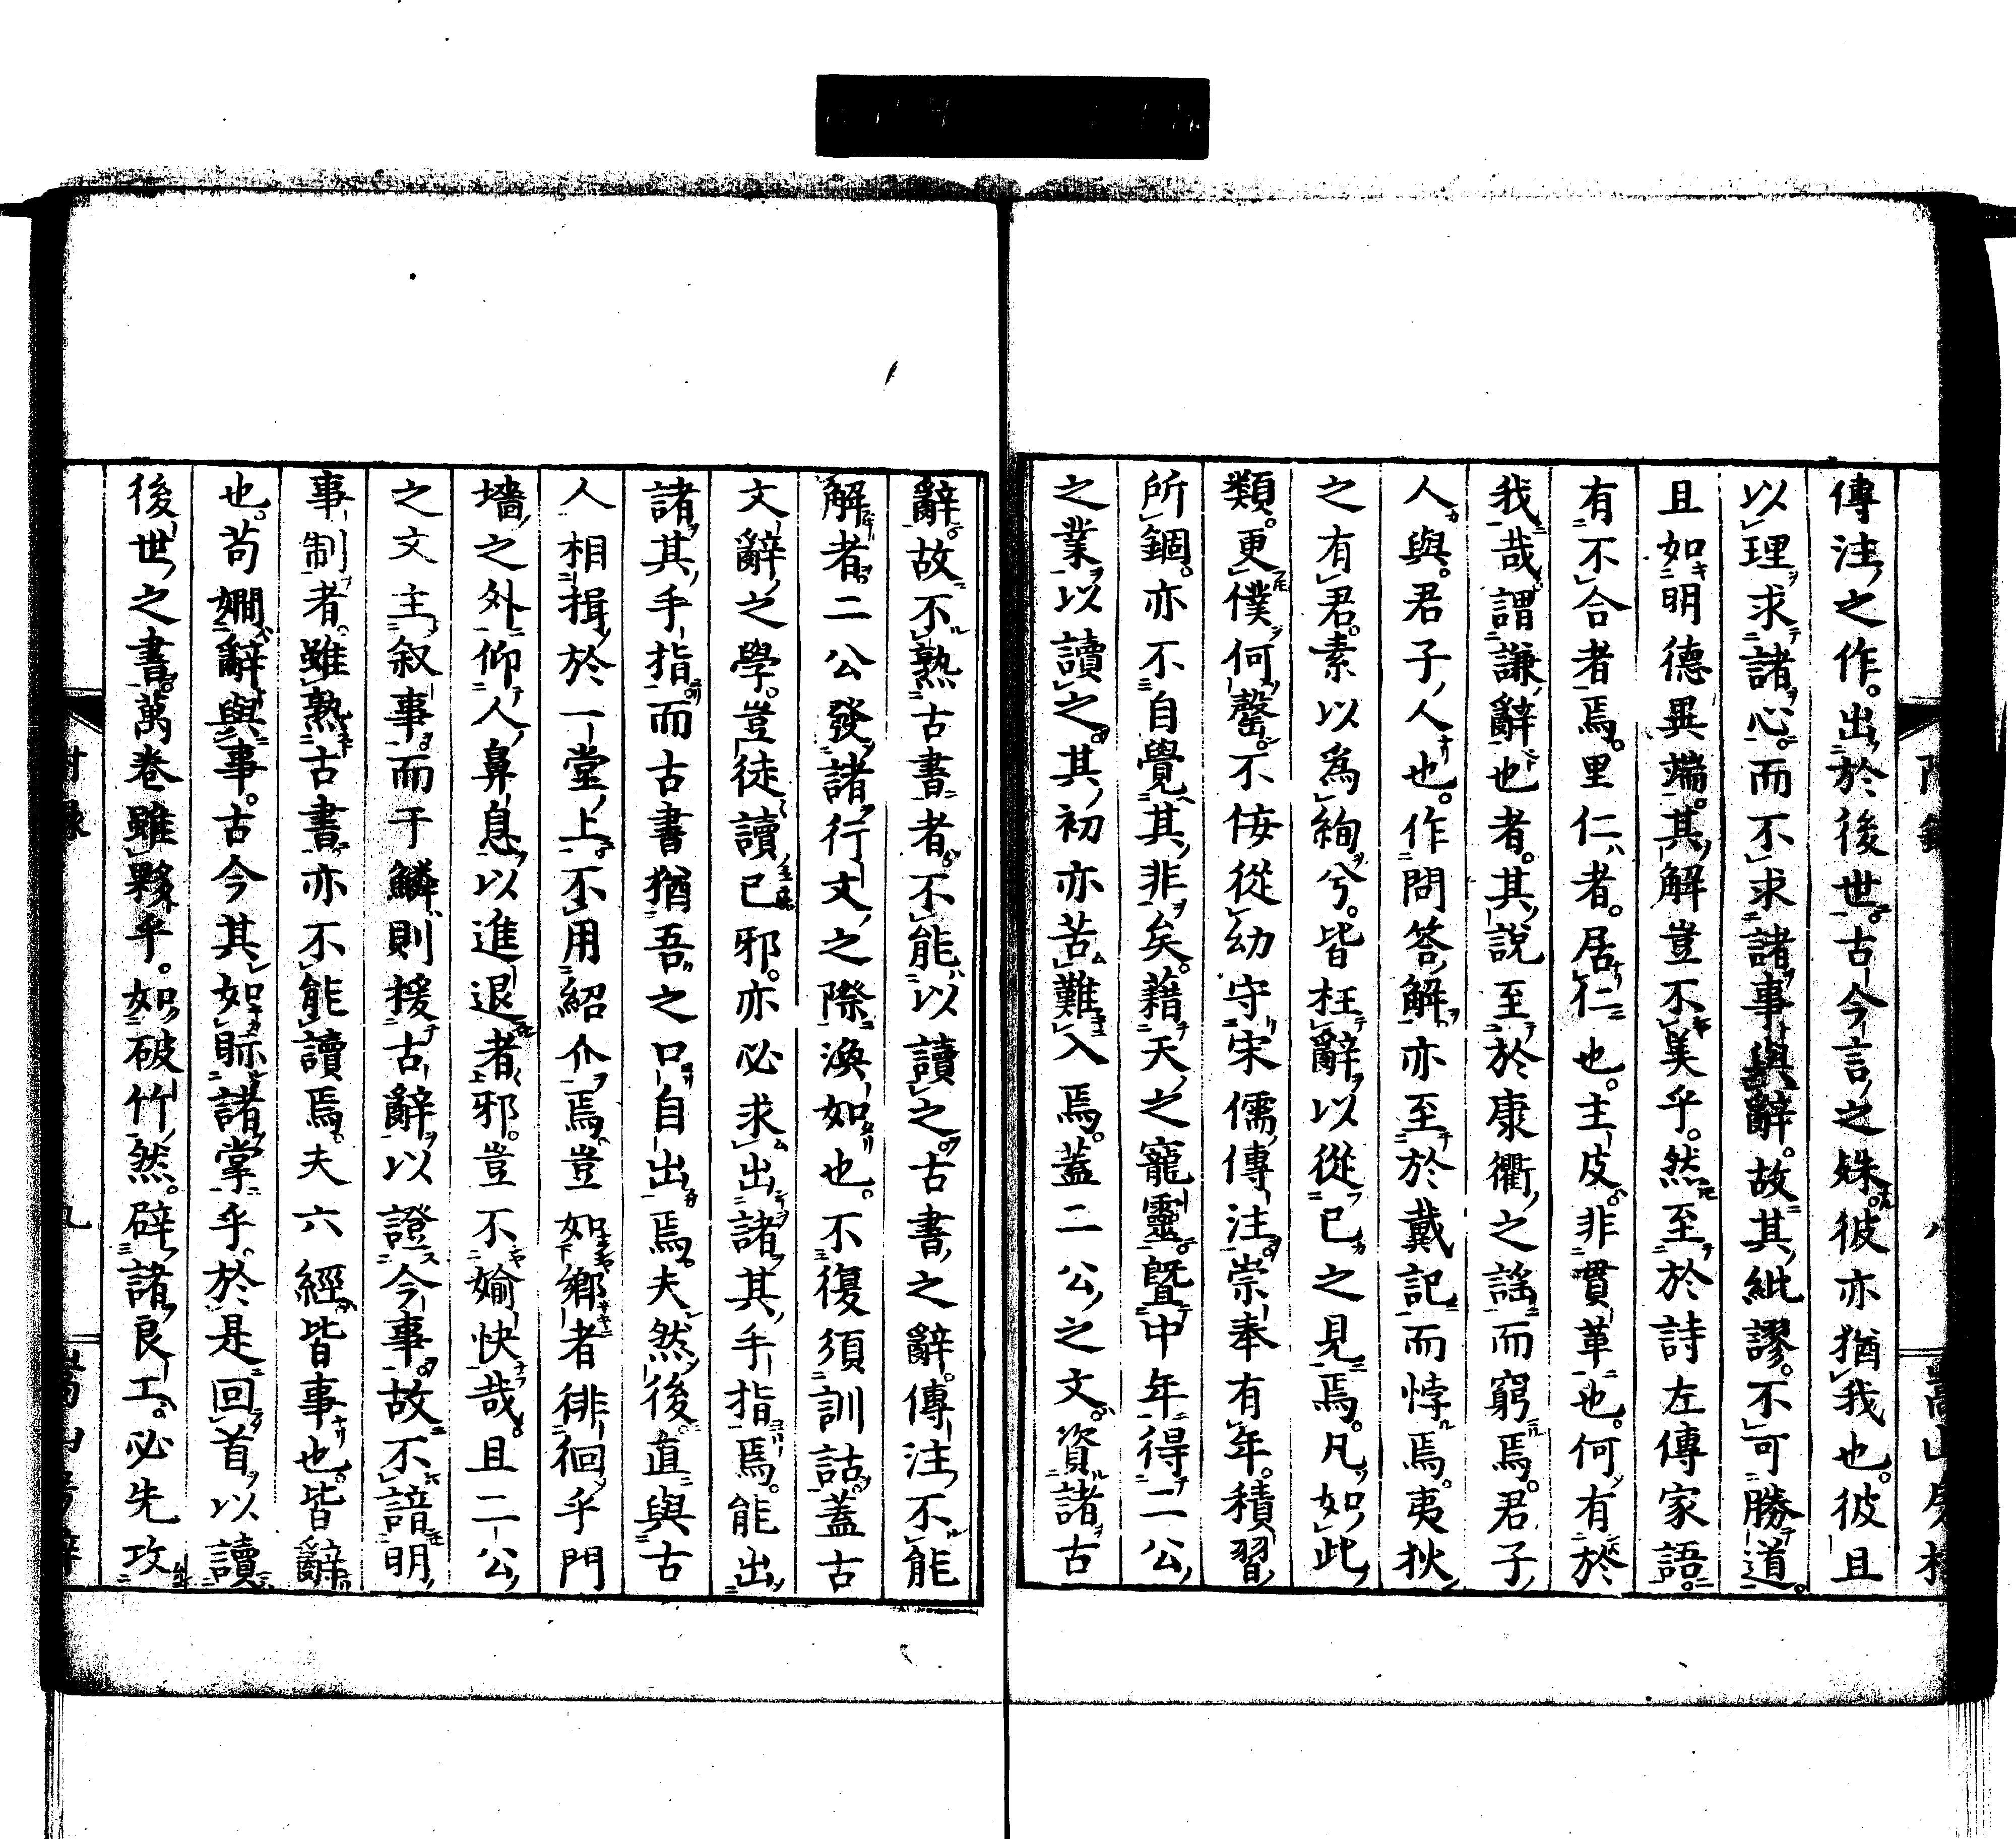 傳注之作。出於後世。古今言之姝。彼亦猶我也。彼且
以理求諸心。而不求諸事與辭。故其紕謬。不可勝道。
且如明德異端。其解豈不美乎。然至於詩左傳家語。
有不合者焉。里仁者。居仁也。主皮。非貫革也。何有於
我哉。謂謙辭也者。其說至於康衢之謡而窮焉。君子
人與。君子人也。作問答解。亦至於戴記而悖焉。夷狄
之有君。素以為絢兮。皆枉辭以從己之見焉。凡如此
類。更僕何罄。不侫從幼守宋儒傳注。崇奉有年。積習
所錮。亦不自覺其非矣。藉天之寵靈。曁中年。得二公
之業以讀之。其初亦苦難入焉。蓋二公之文。資諸古
辭。故不熟古書者。不能以讀之。古書之辭。傳注不能
解者。二公發諸行文之際渙如也。不復須訓詁。蓋古
文辭之學。豈徒讀已邪。亦必求出諸其手指焉。能出
諸其手指。而古書猶吾之口自出焉。夫然後直與古
人相揖於一堂上。不用紹介焉。豈如鄉者徘徊乎門
墻之外。仰人鼻息以進退者邪。豈不婾快哉。且二公
之文主叙事。而于鱗則援古辭以證今事。故不諳明
事制者。雖熟古書。亦不能讀焉。夫六經皆事也。皆辭
也。苟嫺辭與事。古今其如眎諸掌乎。於是回首以讀
後世之書。萬卷雖夥乎。如破竹然。辟諸良工。必先攻